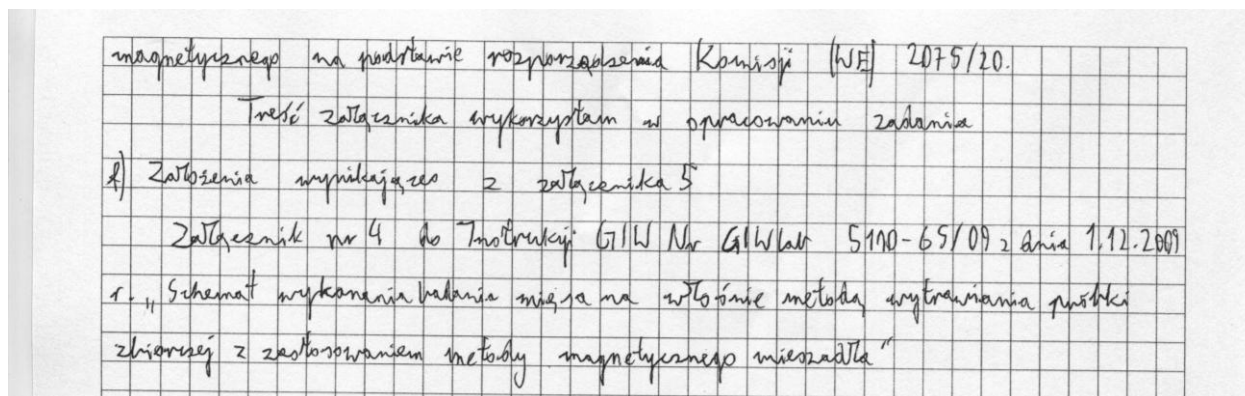 magnetycznego na podstawie rozporządzenia Komisji (WE) 2075/20.
Treść załącznika wykorzystam w opracowaniu zadania
f) Założenia wynikające z załącznika 5
Załącznik nr 4 do Instrukcji GIW Nr GIWlab 5110-65/09 z dnia 1.12.2009
r. „Schemat wykonania badania mięsa na włośnie metodą wytrawiania próbki
zbiorczej z zastosowaniem metody magnetycznego mieszadła"